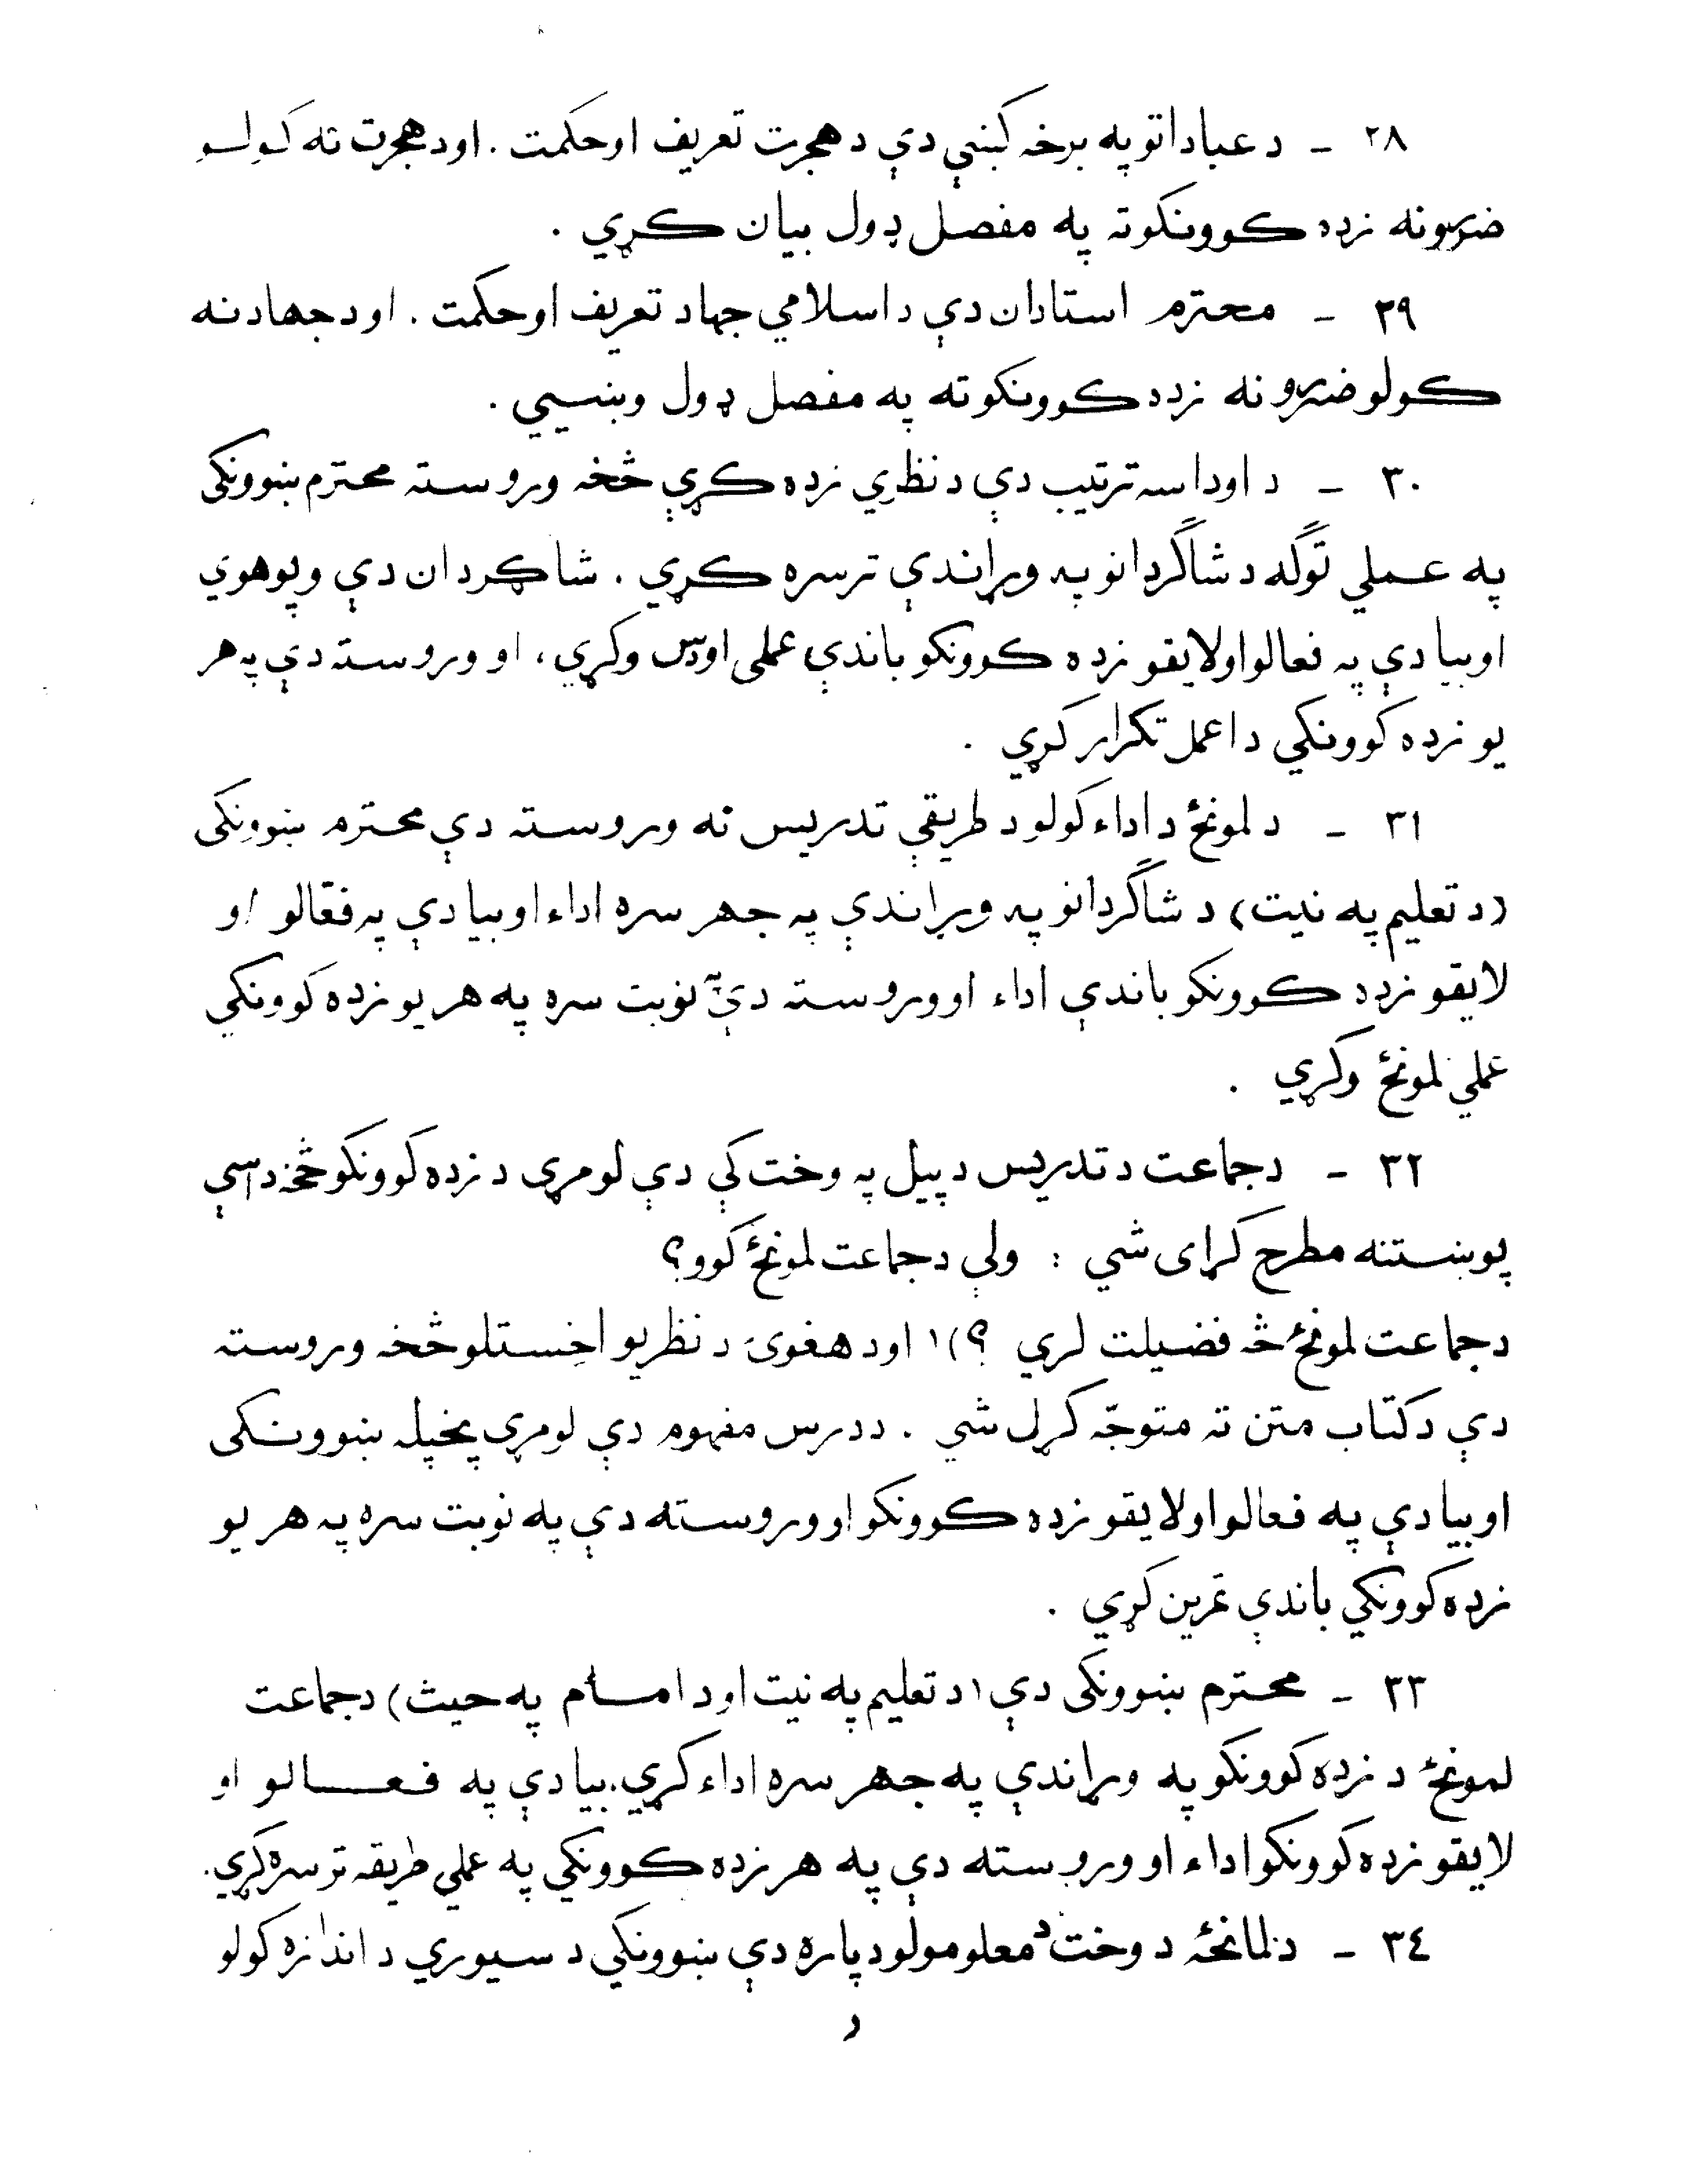 ۲۸ - د عباداتو په برخه کښې دې د هجرت تعریف او حکمت . او د هجرت نه کولو
ضررونه زده کوونکو ته په مفصل ډول بیان کړي .
۲۹ - محترم استادان دې د اسلامي جهاد تعریف او حکمت . او د جهاد نه
کولو ضررونه زده کوونکو ته په مفصل ډول وښیي .
۳۰ - د اوداسه ترتیب دې د نظري زده کړې څخه وروسته محترم ښوونکی
په عملي توګه د شاګردانو په وړاندې ترسره کړي . شاګردان دې وپوهوي
او بیا دې په فعالو او لایقو زده کوونکو باندې عملی اودس وکړي، او وروسته دې په هر
یو زده کوونکي دا عمل تکرار کړي .
۳۱ - د لمونځ د اداء کولو د طریقې تدریس نه وروسته دې محترم ښوونکی
(د تعلیم په نیت) د شاګردانو په وړاندې په جهر سره اداء او بیا دې په فعّالو او
لایقو زده کوونکو باندې اداء او وروسته دې په نوبت سره په هر یو زده کوونکي
عملي لمونځ وکړي .
۳۲ - د جماعت د تدریس د پیل په وخت کې دې لومړی د زده کوونکو څخه داسې
پوښتنه مطرح کړای شي : ولې د جماعت لمونځ کوو؟
د جماعت لمونځ څه فضیلت لري ؟)۱ او د هغوی د نظریو اخیستلو څخه وروسته
دې د کتاب متن ته متوجّه کړل شي . د درس مفهوم دې لومړی پخپله ښوونکی
او بیا دې په فعالو او لایقو زده کوونکو او وروسته دې په نوبت سره په هر یو
زده کوونکي باندې تمرین کړي .
۳۳ - محترم ښوونکی دې (د تعلیم په نیت او د امام په حیث) د جماعت
لمونځ د زده کوونکو په وړاندې په جهر سره اداء کړي. بیا دې په فعالو او
لایقو زده کوونکو اداء او وروسته دې په هر زده کوونکي په عملي طریقه ترسره کړي.
۳٤ - د لمانځه د وخت د معلومولو دپاره دې ښوونکي د سیوري د اندازه کولو
ر